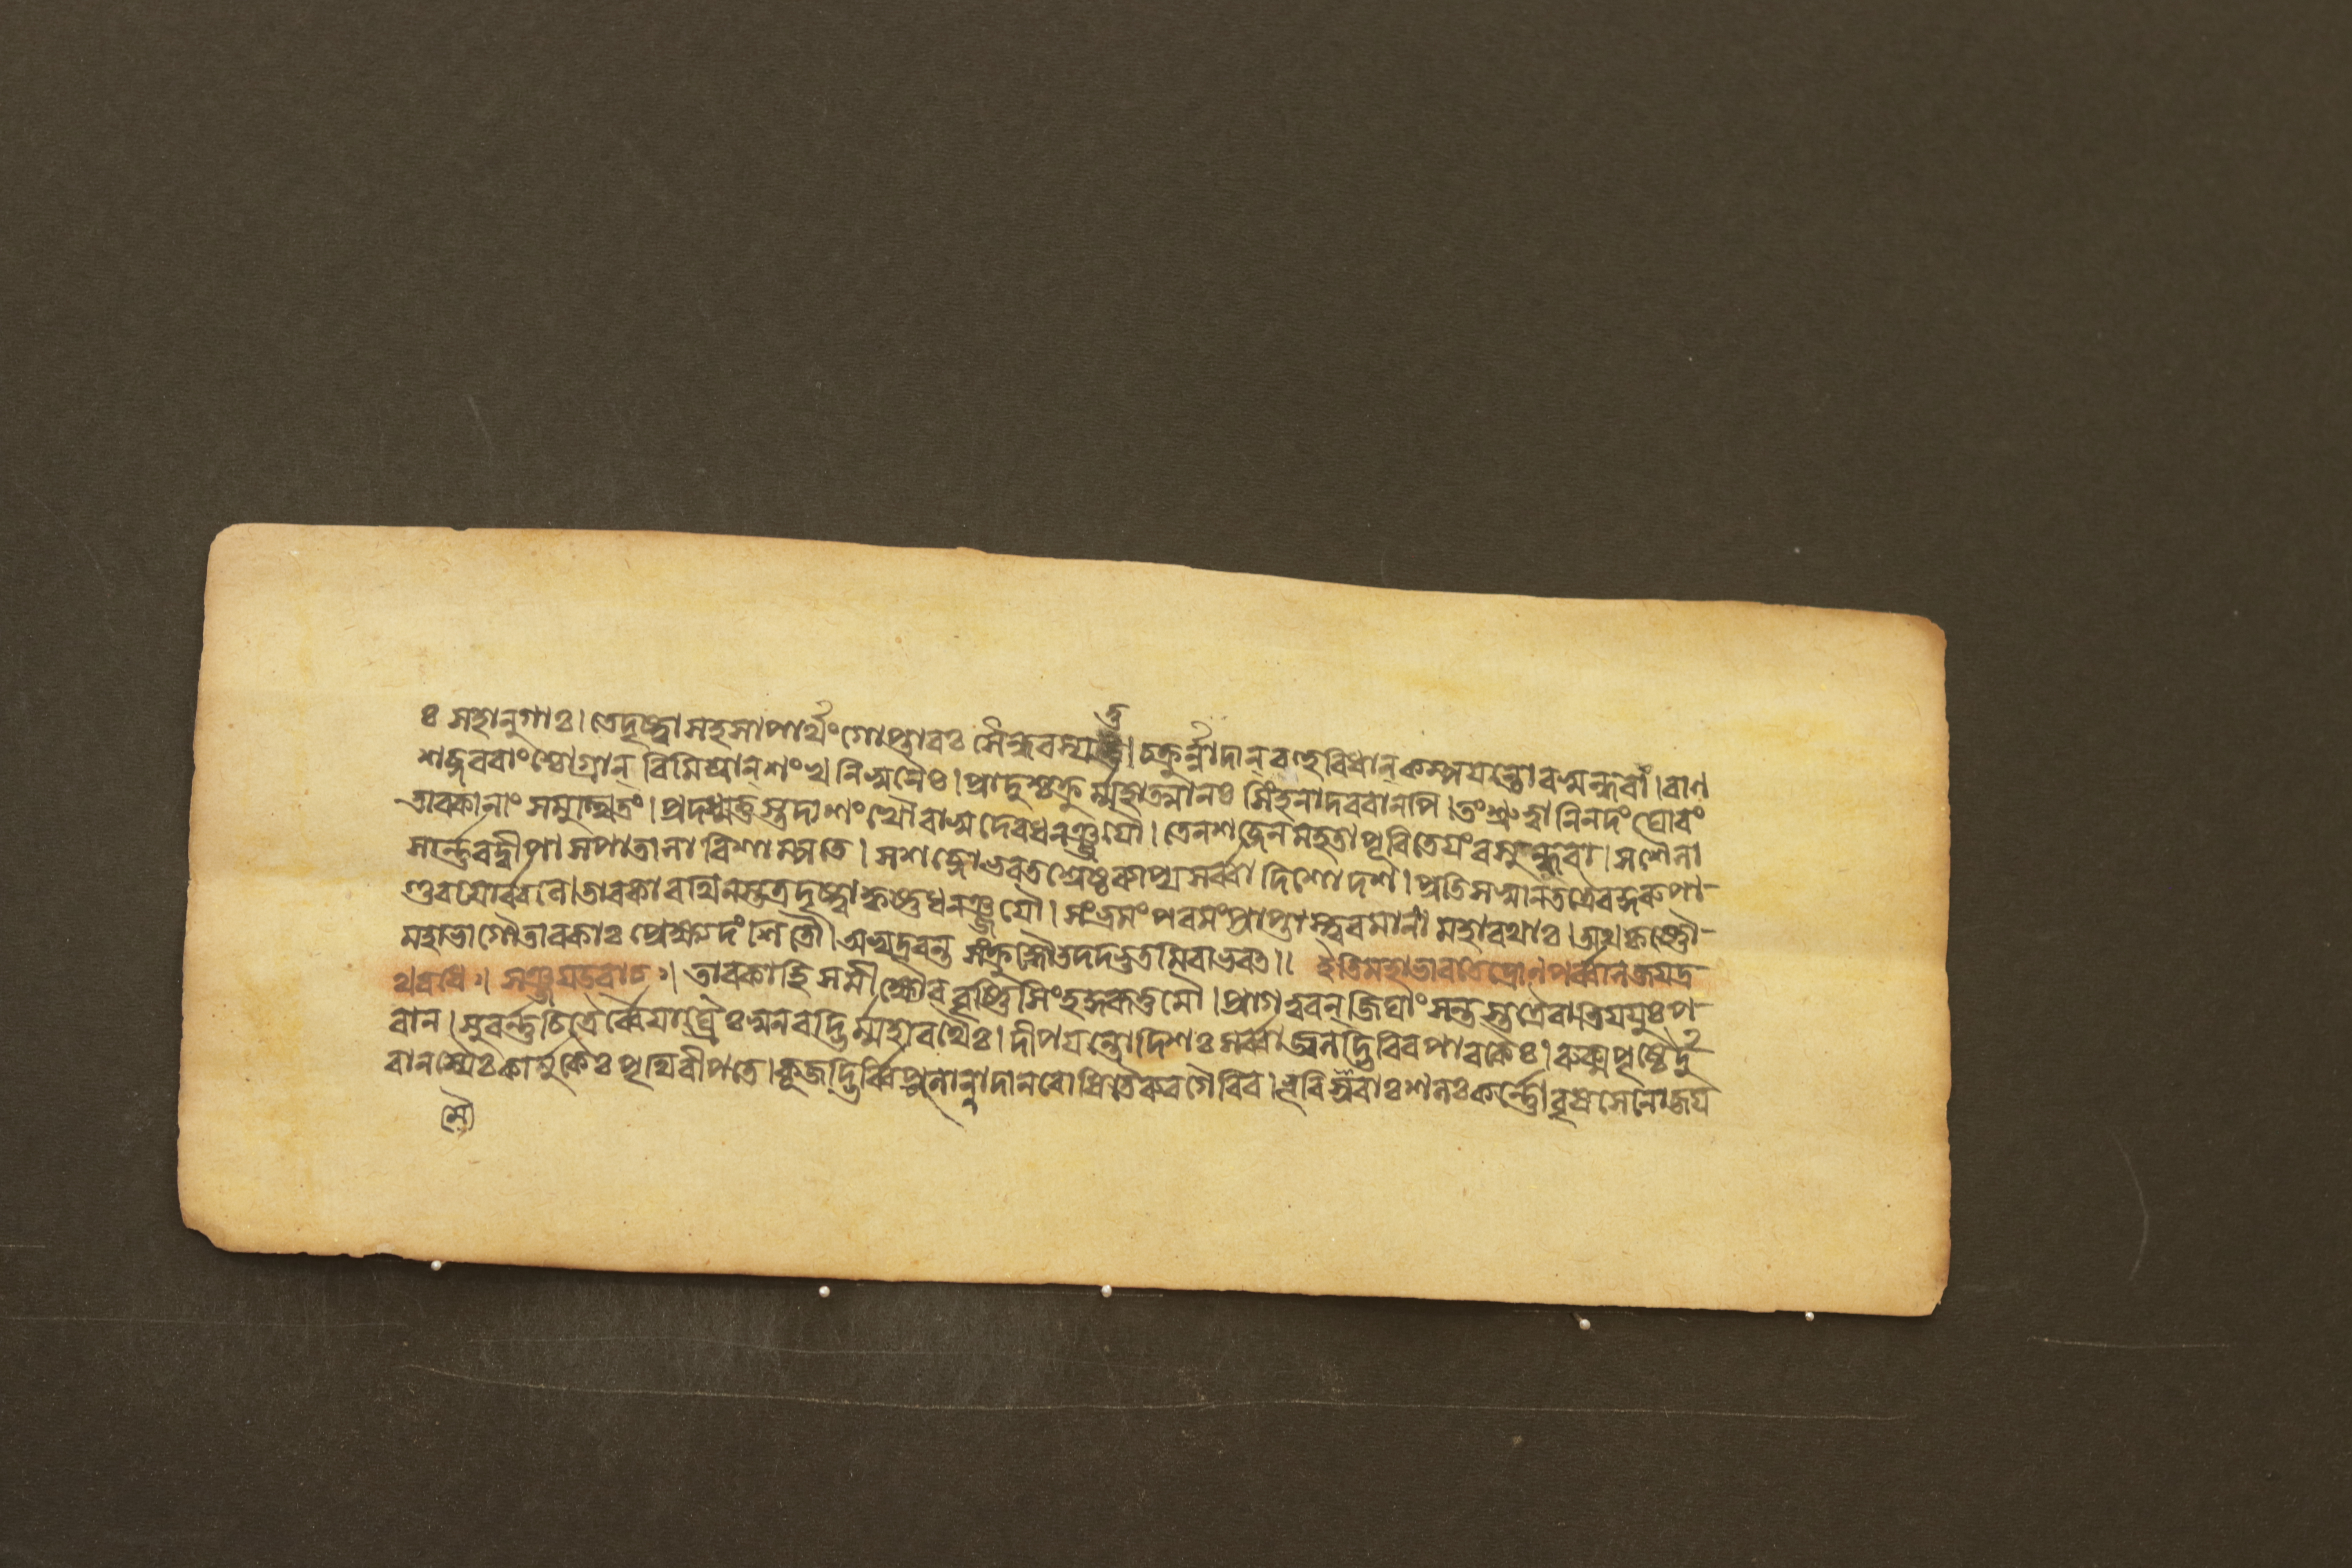 ঃ সহানুগাঃ। তে দৃষ্ট্বা সহসা পার্থং গোপ্তারঃ সৈন্ধবস্য তু। চক্রুর্ন্নাদান্ বহুবিধান্ কম্পয়ন্তো বসুন্ধরাং। বাণ
শব্দরবাংশ্চোগ্রান্ বিমিশ্রান্ শংখনিস্বনৈঃ। প্রাদুশ্চক্রুর্ম্মহাত্মানঃ সিংহনাদরবানপি। তং শ্রুত্বা নিনদং ঘোরং
তাবকানাং সমুত্থিতং। প্রদধ্মতুস্তদা শংখৌ বাসুদেবধনঞ্জয়ৌ। তেন শব্দেন মহতা পূরিতেয়ং বসুন্ধরা। সশৈলা
সার্ণ্ণবদ্বীপা সপাতালা বিশাম্পতে। স শব্দো ভরতশ্রেষ্ঠ ব্যাপ্য সর্ব্বা দিশো দশ। প্রতিসস্বান তত্রৈব কুরুপা-
ণ্ডবয়োর্ব্বলে। তাবকা রথিনস্তত্র দৃষ্ট্বা কৃষ্ণধনঞ্জয়ৌ। সংভ্রমং পরমং প্রাপ্তাস্ত্বরমাণা মহারথাঃ। অথ কৃষ্ণৌ-
মহাভাগৌ তাবকাঃ প্রেক্ষ্য দংশিতৌ। অভ্যদ্রবন্ত সংক্রুদ্ধাস্তদদ্ভুতমিবাভবৎ॥ ইতি মহাভারতে দ্রোণপর্ব্বণি জয়দ্র
থবধে॥ সঞ্জয় উবাচ॥ তাবকা হি সমীক্ষ্যৈব বৃষ্ণিসিংহকুরূত্তমৌ। প্রাগত্বরন্ জিঘাংসন্তস্তথৈব প-
রান। সুবর্ণ্ণচিত্রৈর্ব্বৈয়াঘ্রৈঃ স্বনবদ্ভির্ম্মহারথৈঃ। দীপয়ন্তো দিশঃ সর্ব্বা জ্বলদ্ভিরিব পাবকৈঃ। রুক্মপৃষ্ঠৈর্দু
কার্ম্মুকৈঃ পৃথিবীপতে। কূজদ্ভি ভূরিশ্রবাঃ শলঃ কর্ণ্ণো বৃষসেনো জয়